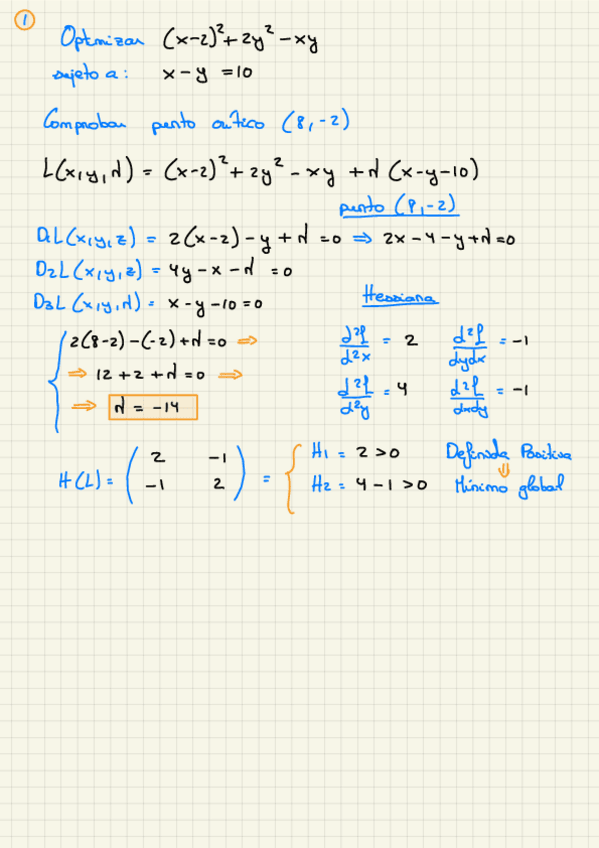 1
Optimizar (x-2)²+2y²-xy
sujeto a: x-y=10
Comprobar punto crítico (8,-2)
L(x,y,λ) = (x-2)²+2y²-xy+λ(x-y-10)
punto (8,-2)
D₁L(x,y,z) = 2(x-2)-y+λ=0 ⇒ 2x-4-y+λ=0
D₂L(x,y,z) = 4y-x-λ=0
D₃L(x,y,λ) = x-y-10=0
Hessiana
2(8-2)-(-2)+λ=0 ⇒
⇒ 12+2+λ=0 ⇒
⇒ λ = -14
d²f/d²x = 2 d²f/dydx = -1
d²f/d²y = 4 d²f/dxdy = -1
H(L) = ( 2 -1
-1 2 ) =
H₁ = 2>0 Definida Positiva
⇓
H₂ = 4-1>0 Mínimo global